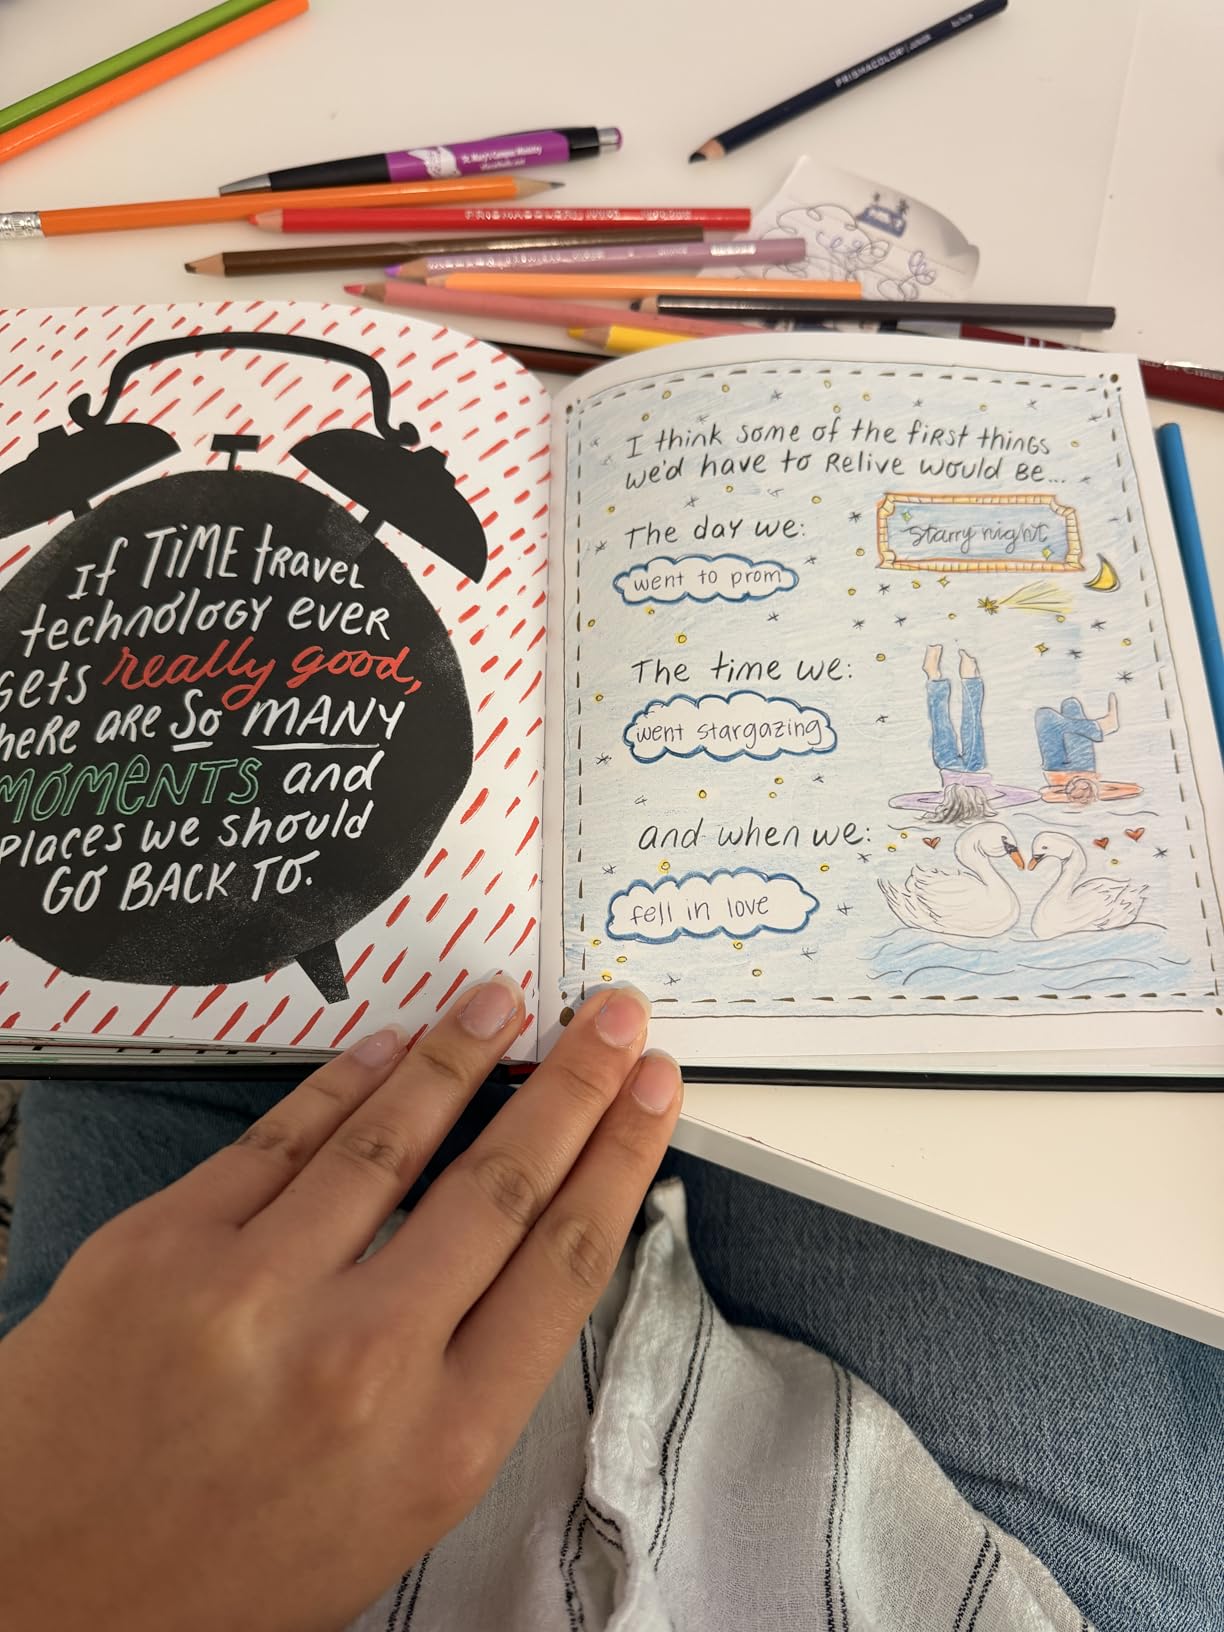 PRISMACOLOR JUNIOR
St. Mary's Campus Ministry
PRISMACOLOR JUNIOR
If TIME travel
technology ever
gets really good,
here are so MANY
MOMENTS and
places we should
GO BACK TO.
I think some of the first things
we'd have to relive would be...
The day we:
starry night
went to prom
The time we:
went stargazing
and when we:
fell in love